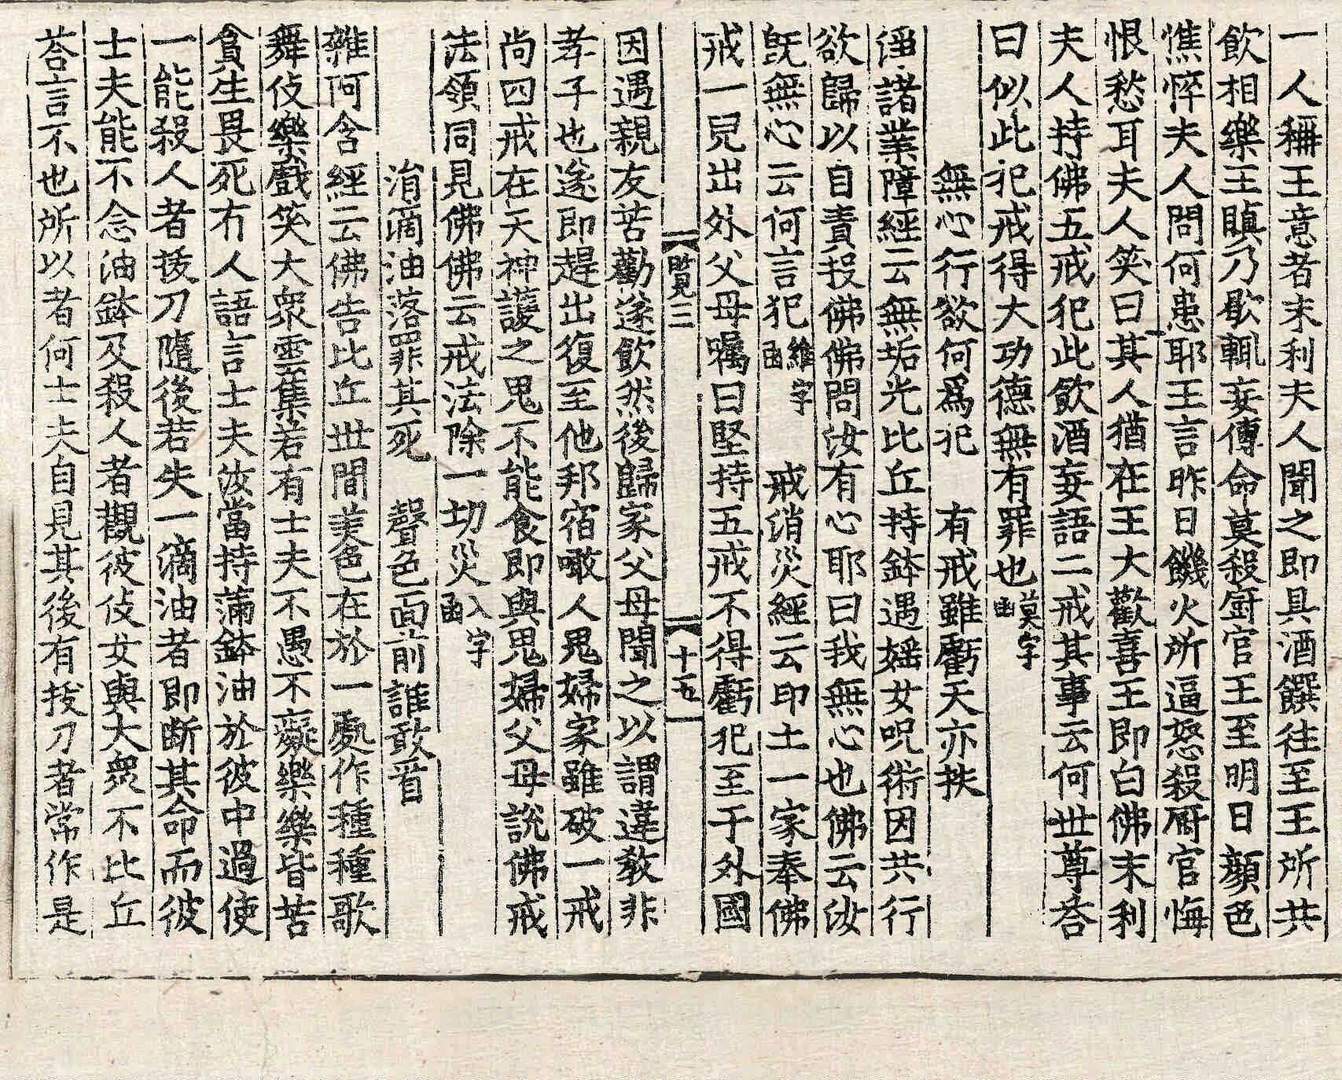 一人稱王意者末利夫人聞之即具酒饌往至王所共
飮相樂王瞋乃歇輒妄傳命莫殺厨官王至明日顔色
憔悴夫人問何患耶王言昨日饑火所逼怒殺厨官悔
恨愁耳夫人笑曰其人猶在王大歡喜王即白佛末利
夫人持佛五戒犯此飮酒妄語二戒其事云何世尊荅
曰似此犯戒得大功德無有罪也莫字函
無心行欲何爲犯 有戒雖虧天亦扶
淫諸業障經云無垢光比丘持鉢遇婬女呪術因共行
欲歸以自責投佛佛問汝有心耶曰我無心也佛云汝
旣無心云何言犯維字函 戒消災經云印土一家奉佛
戒一兒出外父母囑曰堅持五戒不得虧犯至于外國
賢三 十五
因遇親友苦勸遂飮然後歸家父母聞之以謂違敎非
孝子也遂即趕出復至他邦宿噉人鬼婦家雖破一戒
尚四戒在天神護之鬼不能食即與鬼婦父母說佛戒
法領同見佛佛云戒法除一切災入字函
涓滴油落罪其死 聲色面前誰敢看
雜阿含經云佛告比丘世間美色在於一處作種種歌
舞伎樂戲笑大衆雲集若有士夫不愚不癡樂樂皆苦
貪生畏死有人語言士夫汝當持滿鉢油於彼中過使
一能殺人者拔刀隨後若失一滴油者即斷其命而彼
士夫能不念油鉢及殺人者觀彼伎女與大衆不比丘
荅言不也所以者何士夫自見其後有拔刀者常作是